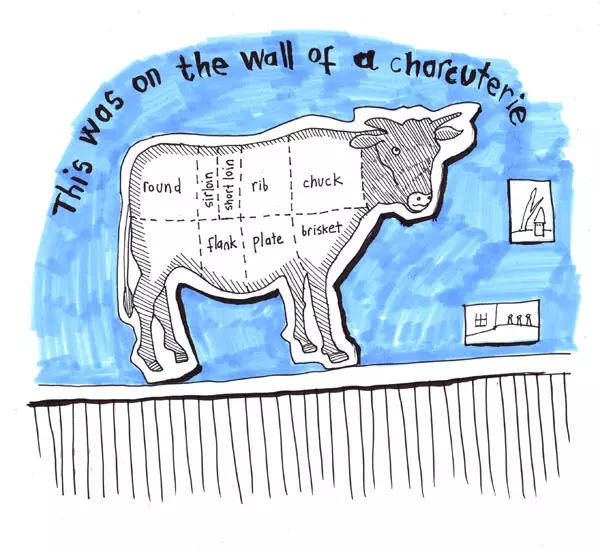 This was on the wall of a charcuterie
round
sirloin
short loin
rib
chuck
flank
plate
brisket